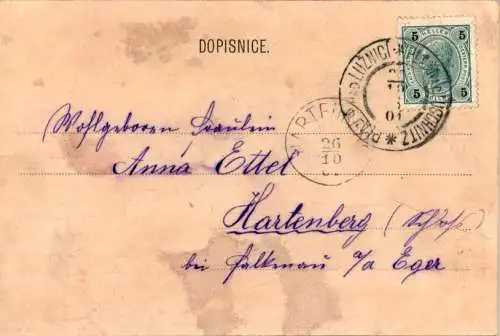 DOPISNICE.
5 HELLER 5
5 5
LUŽNIC
01
HARTEN
26
10
Wohlgeboren Fräulein
Anna Ettel
Hartenberg (Schloss
bei Falkenau a/a Eger